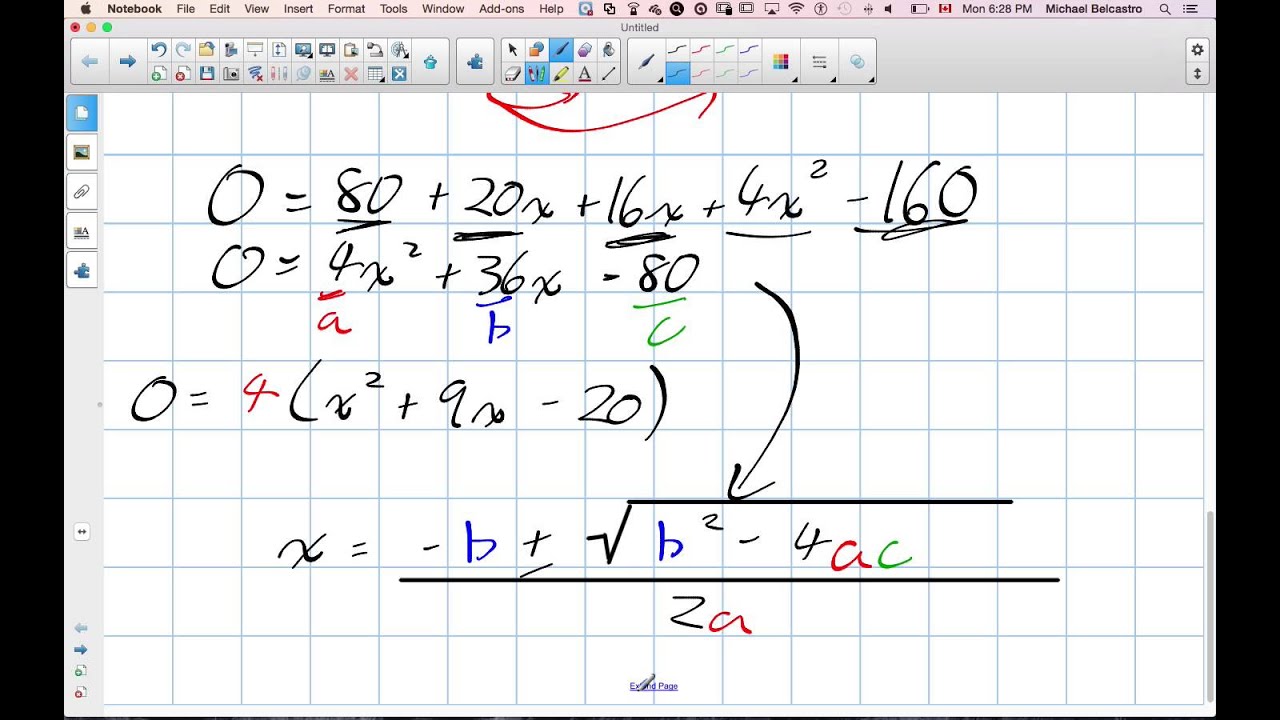 Notebook File Edit View Insert Format Tools Window Add-ons Help Mon 6:28 PM Michael Belcastro
Untitled
0 = 80 + 20x + 16x + 4x² - 160
0 = 4x² + 36x - 80
a b c
0 = 4(x² + 9x - 20)
x = -b ± √b² - 4ac
2a
Extend Page